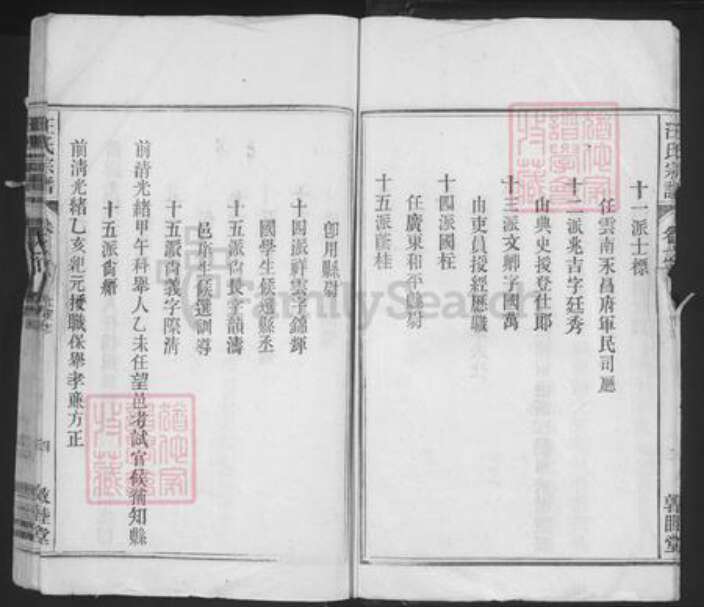 十一派士標
任雲南永昌府軍民司廳
十二派兆吉字廷秀
由典史授登仕郎
十三派文卿字國萬
由吏員授經歷職
十四派國柱
任廣東和平縣尉
十五派 桂
卽用縣尉
十四派祥雲字錦輝
國學生候選縣丞
十五派尙 字韻濤
邑庠生候選訓導
十五派尙義字際淸
前淸光緒甲午科舉人乙未任望邑考試官候補知縣
十五派尙 
前淸光緒乙亥 元授職保舉孝廉方正
汪氏宗譜
四
敦睦堂
FamilySearch